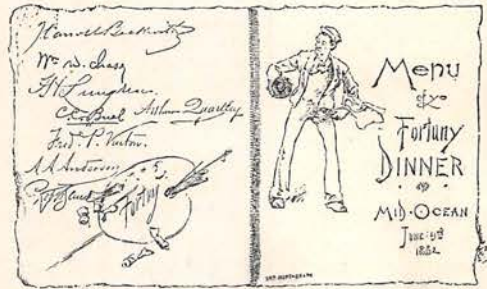 J Carroll Beckwith
Wm. W. Chase
F. H. Lungren
C C Buel Arthur Quartley
Fred. P. Vinton
A A Anderson
Fortuny
Menu
of ye
Fortuny
DINNER
MID-OCEAN
June 19th
1882